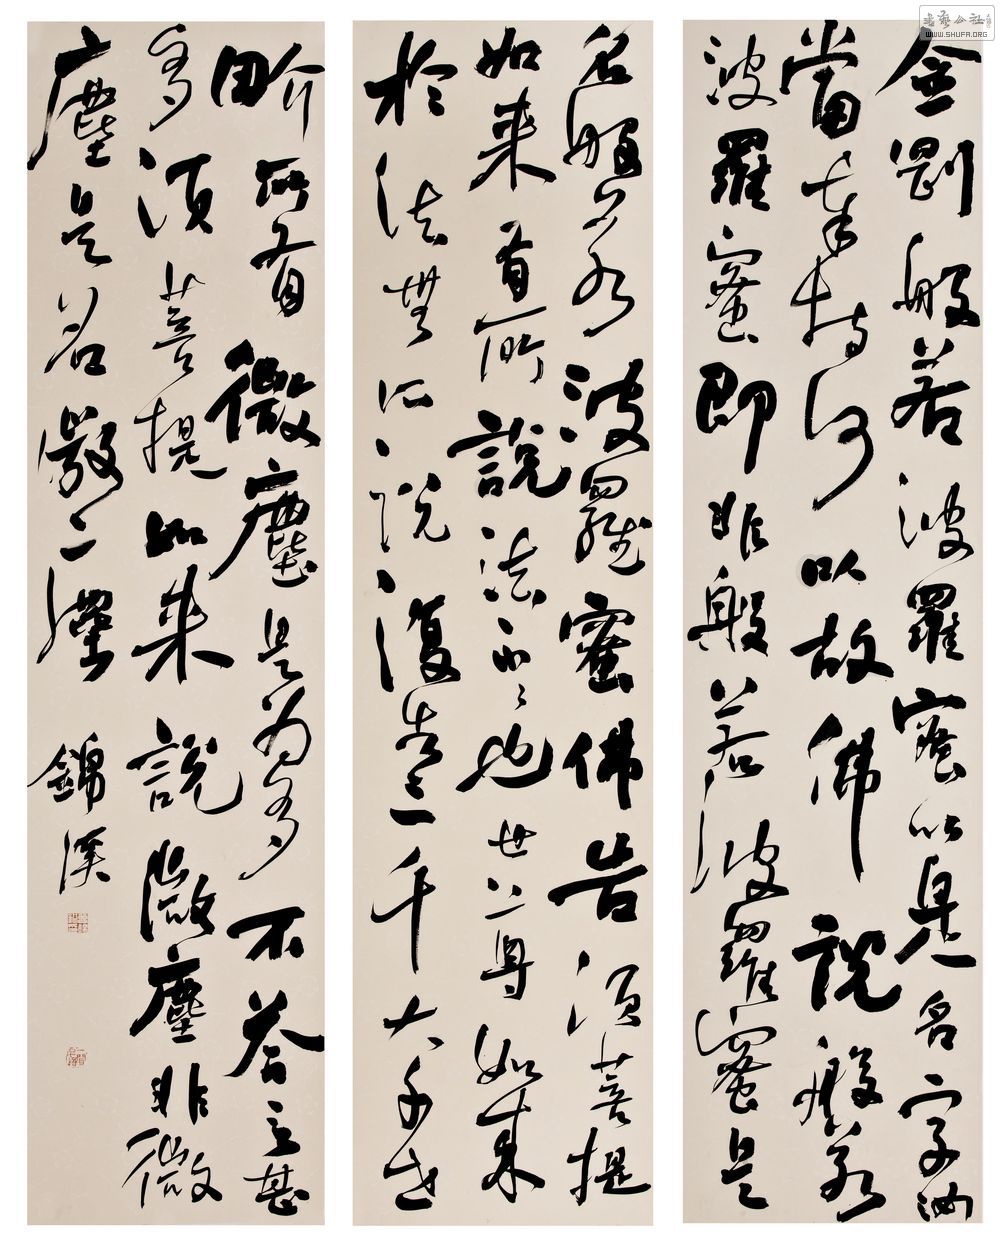 金剛般若波羅蜜以是名字汝
當奉持何以故佛說般若
波羅蜜即非般若波羅蜜是
名般若波羅蜜佛告須菩提
如來有所說法不々也世尊如來
於法無所說復告三千大千世
界所有微塵是為多不答言甚
多須菩提如來說微塵非微
塵是名
錦溪
書藝公社
WWW.SHUFA.ORG